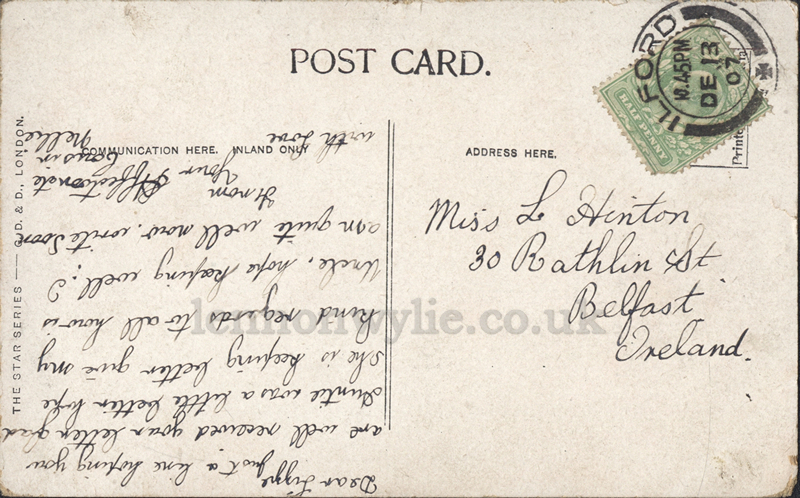 POST CARD.
COMMUNICATION HERE. INLAND ONLY
ADDRESS HERE.
THE STAR SERIES — G.D. & D., LONDON.
ILFORD
10.45PM
DE 13
07
HALFPENNY
Printe
Miss L Hinton
30 Rathlin St
Belfast
Ireland.
Dear Lizzie
just a line hoping you
are well received your letter glad
Auntie was a little better hope
she is keeping better give my
kind regards to all how is
Uncle, hope keeping well?
am quite well now. write soon
From
Your Affectionate
Cousin
Nellie
with love
lennonwylie.co.uk